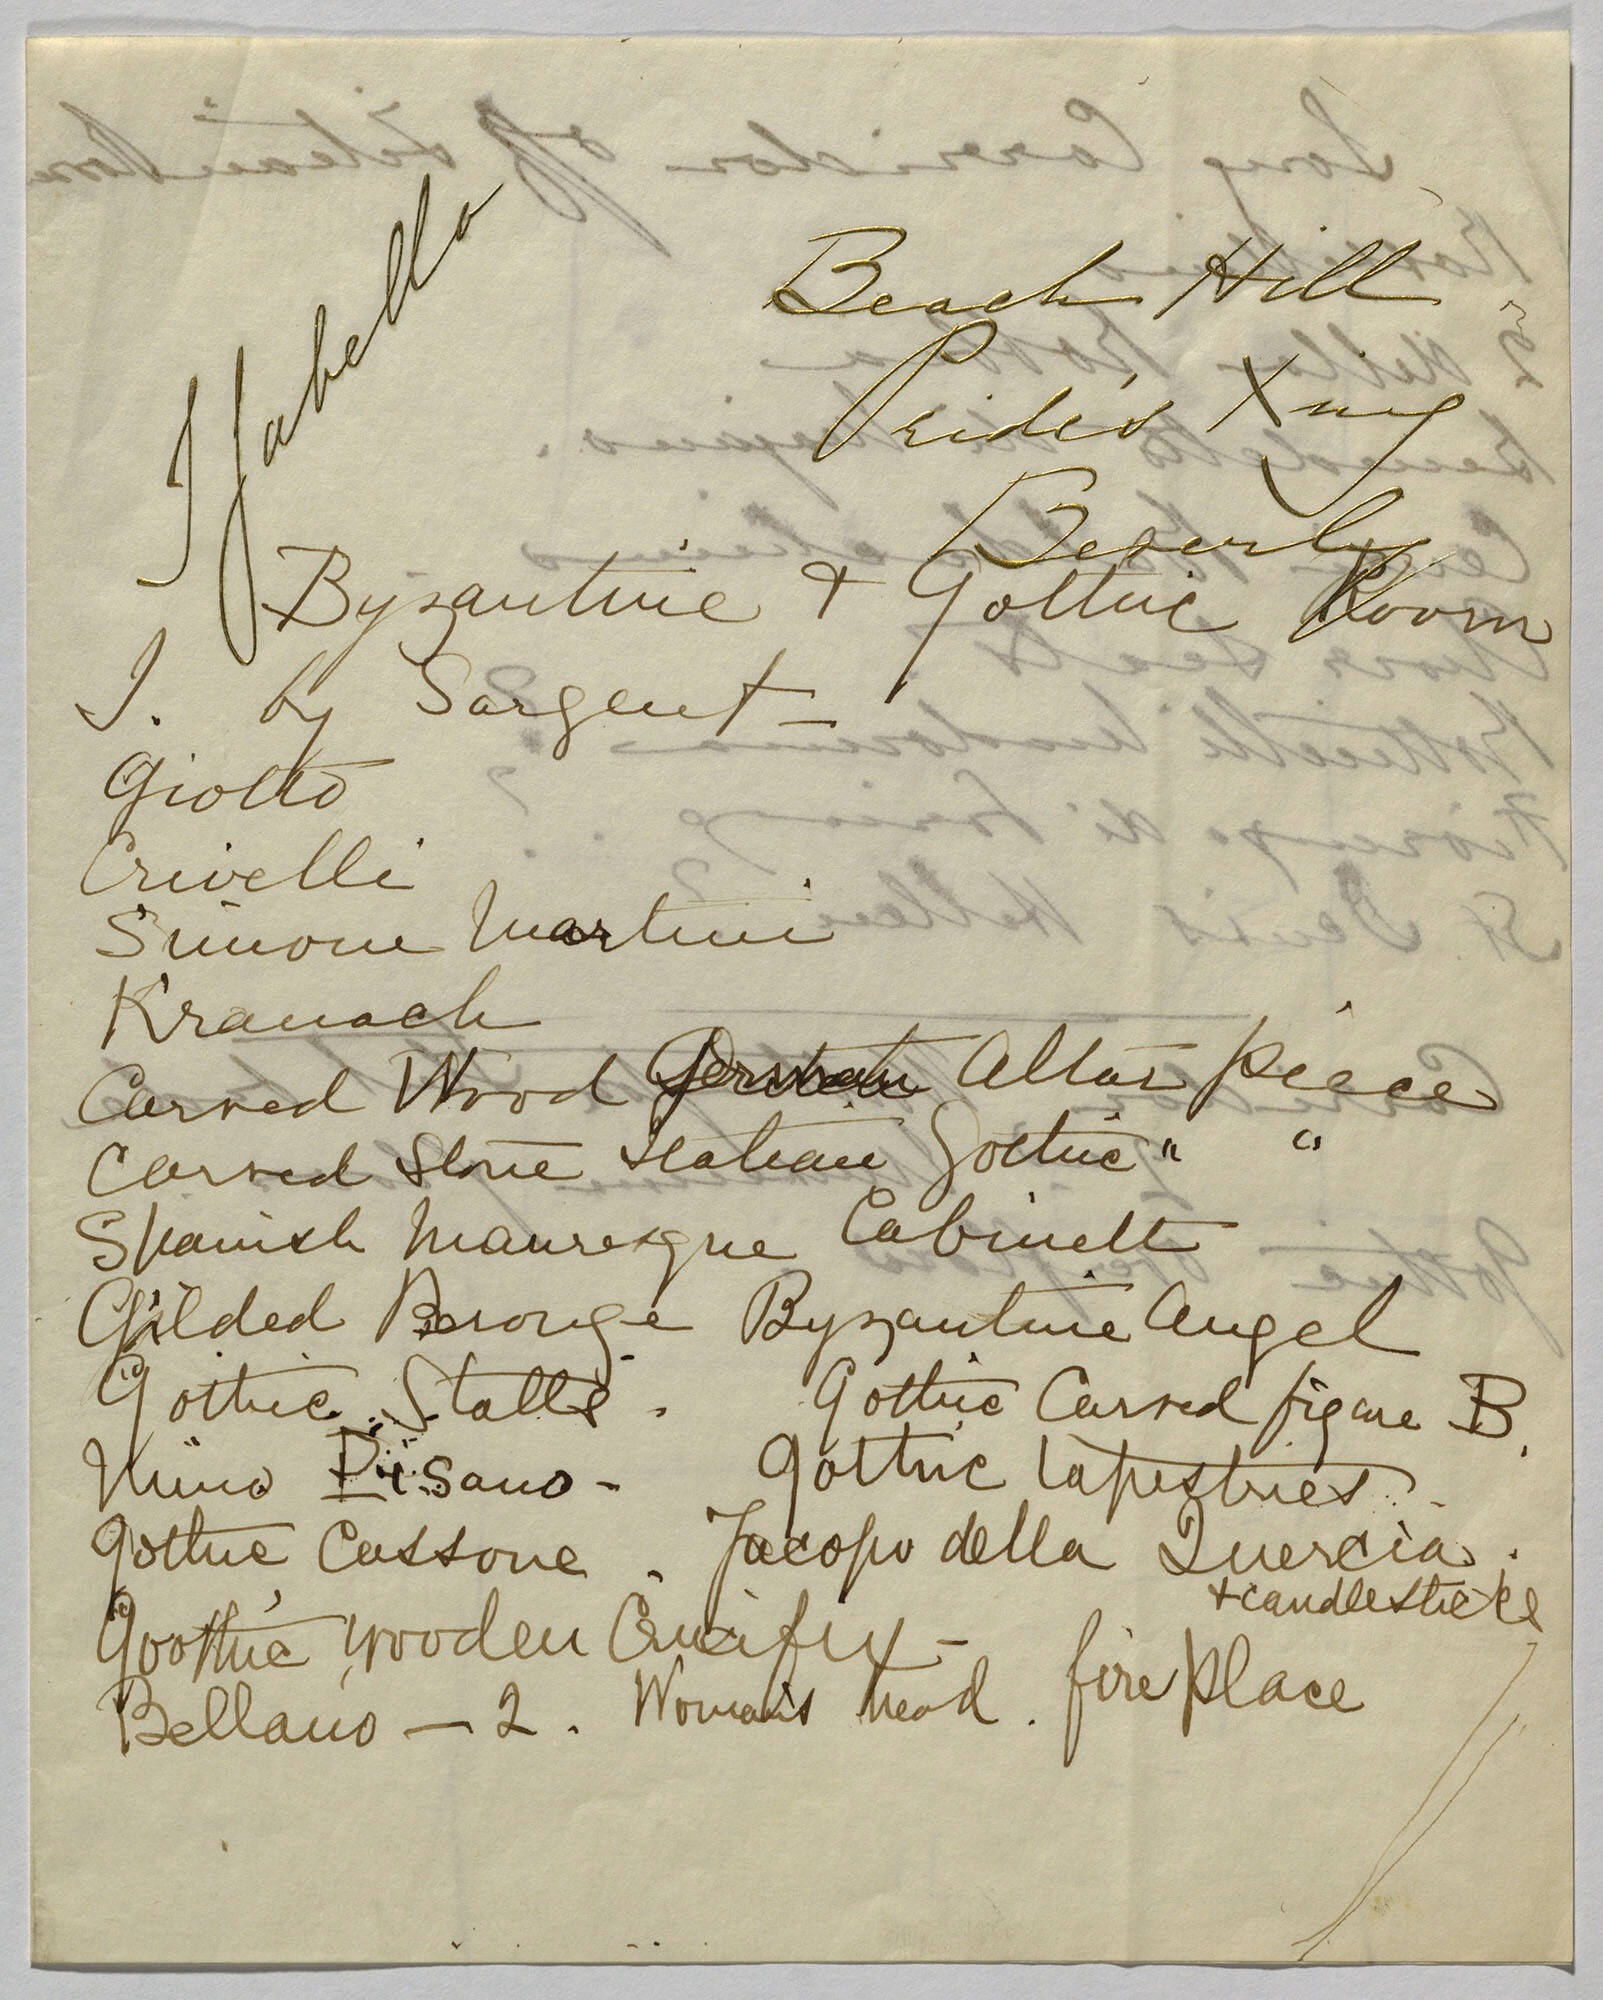 Isabella
Beach Hill
Pride's Xing
Beverly
Byzantine + Gothic Room
I. by Sargent -
Giotto
Crivelli
Simone Martini
Kranach
Carved Wood German Altar piece
Carved Stone Italian Gothic " "
Spanish Mauresque Cabinett
Gilded Bronze Byzantine Angel
Gothic Stalls. Gothic Carved figure B.
Nino Pisano - Gothic tapestries.
Gothic Cassone. Jacopo della Quercia.
+ candlesticks
Goothic wooden Crucifix -
Bellano - 2. Woman's head. fire place